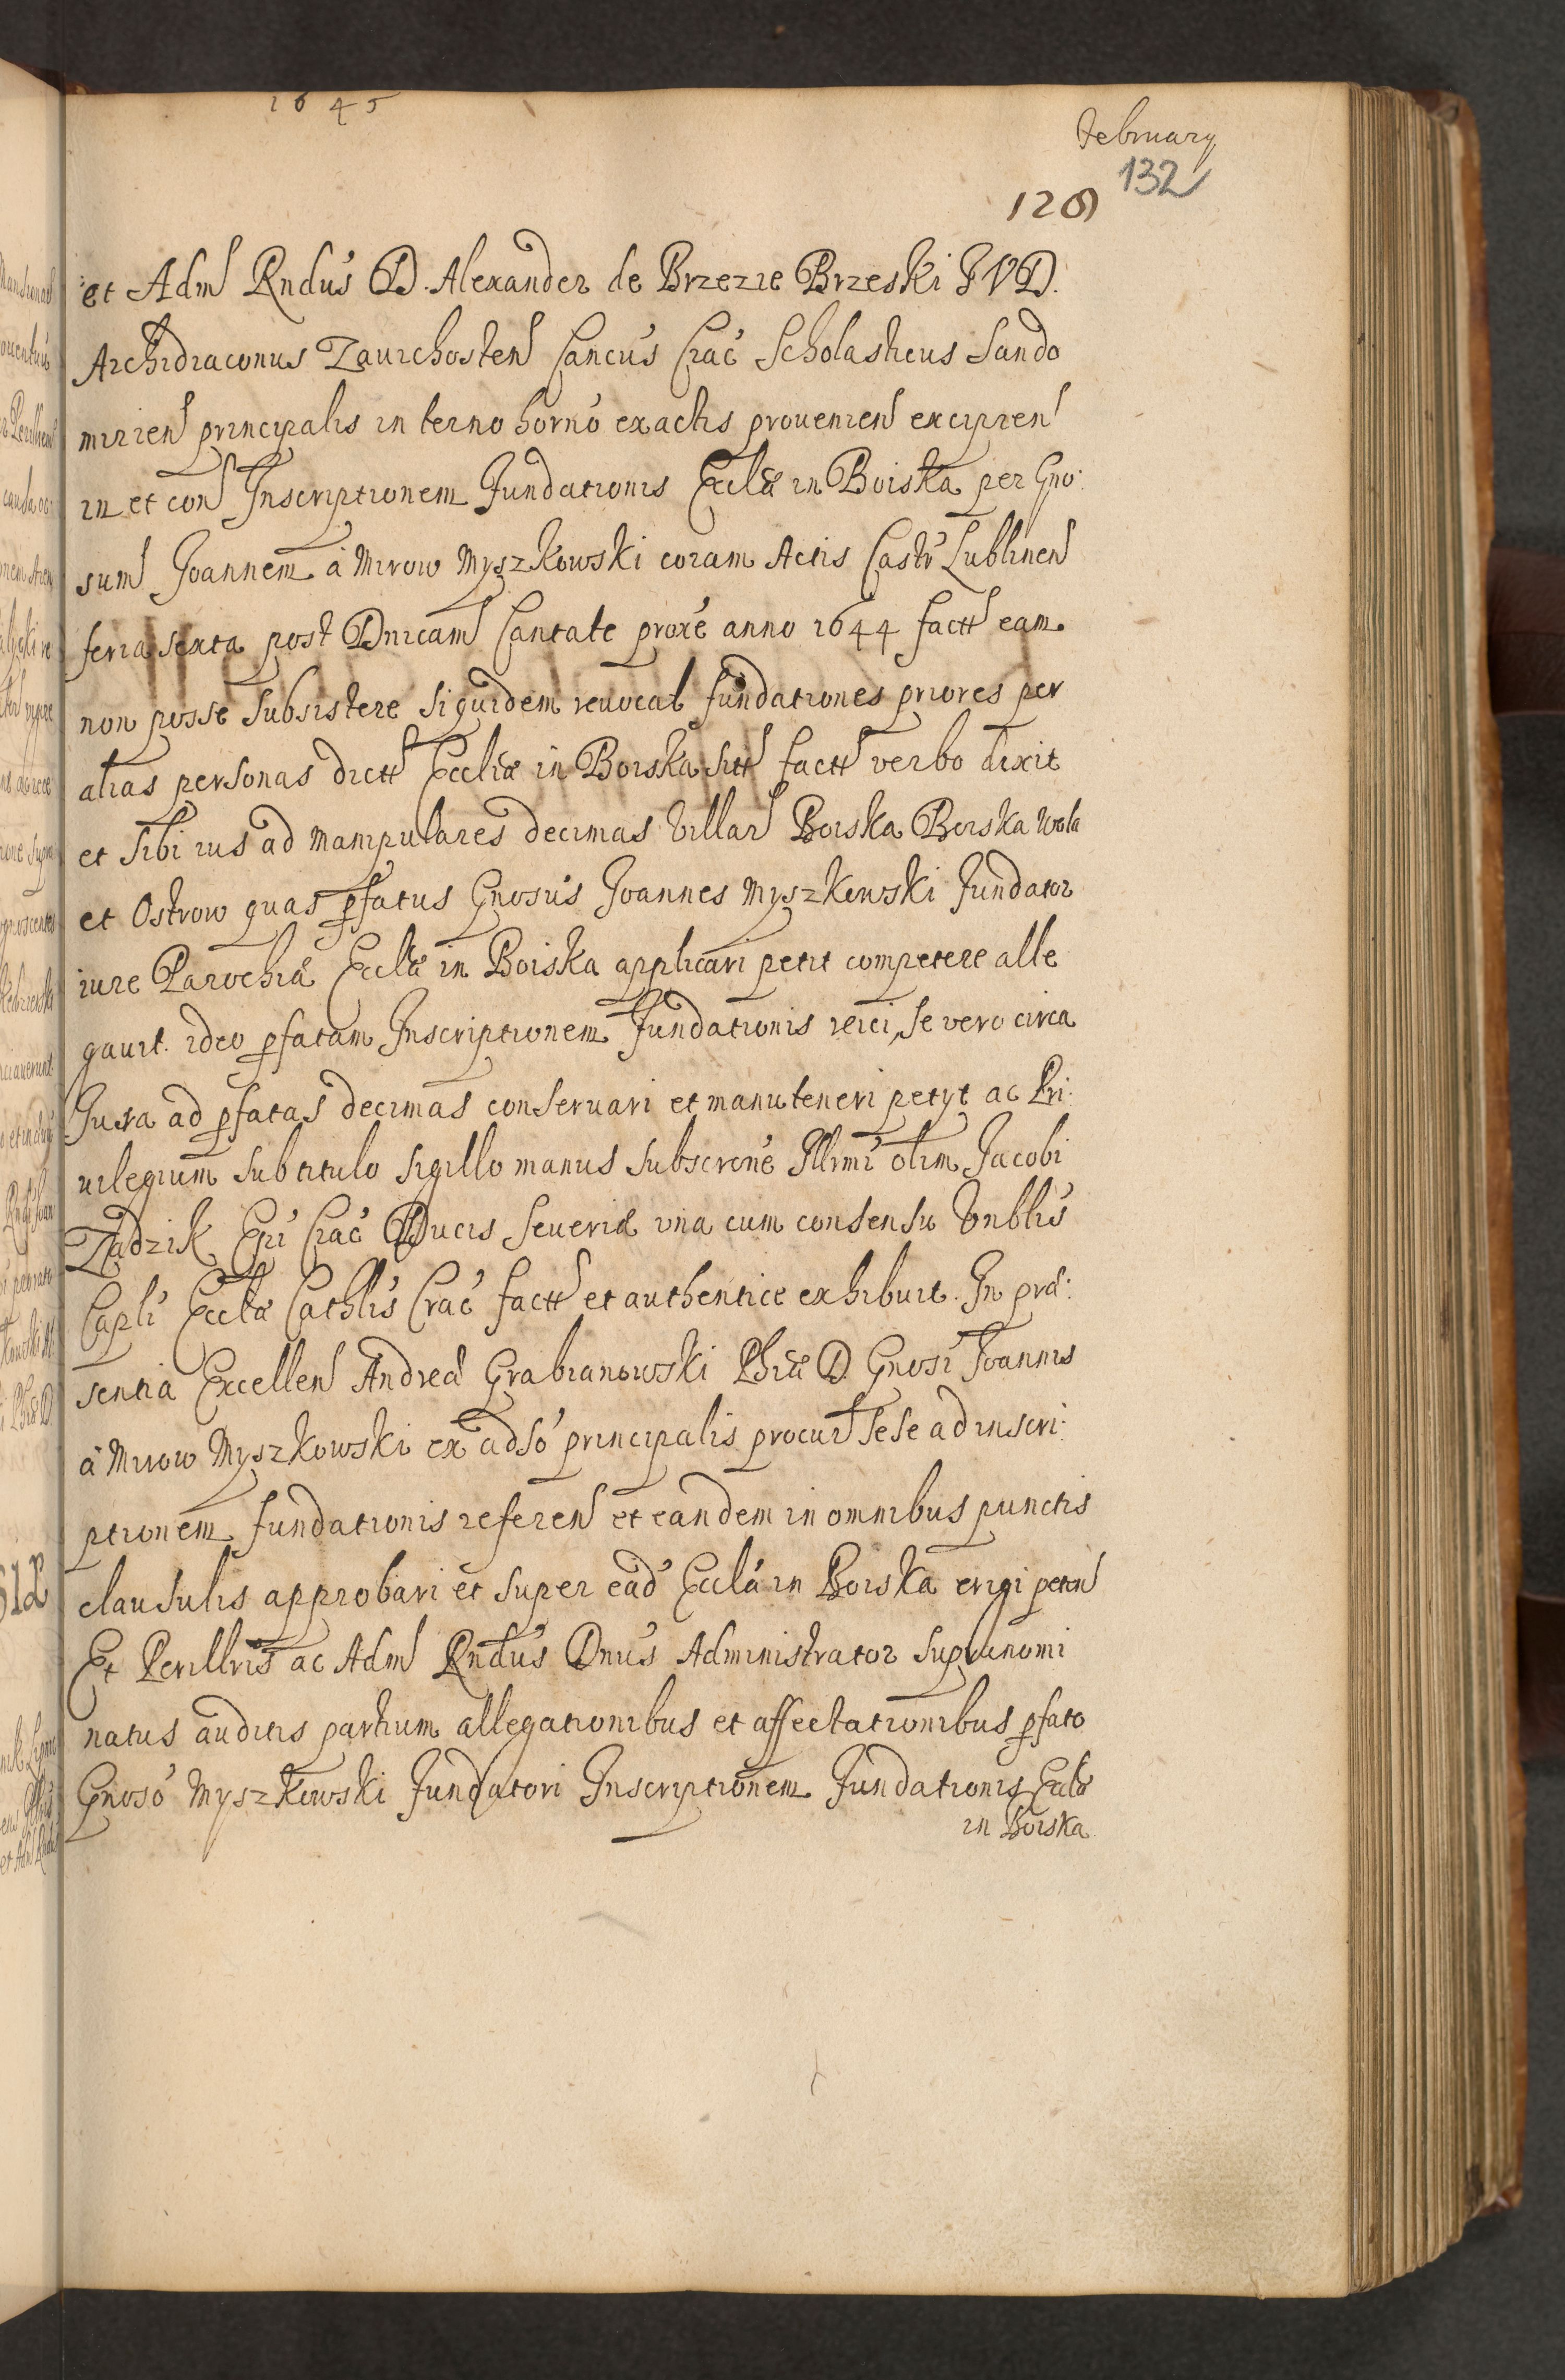 1645
February
132
128
et Adm Rndus D. Alexander de Brzezie Brzeski J V D.
Archidiaconus Zauichosten Cancus Crac Scholasticus Sando
mirien principalis in termo horno exactis prouenien excipien
in et con Inscriptionem Fundationis Eccla in Boiska per Gno:
sum Joannem à Mirow Myszkowski coram Actis Castr Lublinen
feria sexta post Dnicam Cantate proxe anno 1644 factt eam
non posse subsistere siquidem reuocat fundationes priores per
alias personas dictt Ecclia in Boiska sitt factt verbo dixit
et sibi ius ad manipulares decimas villar Boiska Boiska Wola
et Ostrow quas pfatus Gnosus Joannes Myszkowski Fundator
iure Parochia Eccla in Boiska applicari petit competere alle
gauit. ideo pfatam Inscriptionem Fundationis reici, se vero circa
Jura ad pfatas decimas conseruari et manuteneri petyt ac Pri:
uilegium sub titulo sigillo manus subscrone Illrmi olim Jacobi
Zadzik Epi Crac Ducis Seueria una cum consensu Vnblis
Capli Eccla Cathlis Crac factt et authentice exhibuit. In præ:
sentia Excellen Andrea Grabianowski Phia D. Gnosi Joannis
à Mirow Myszkowski ex adso principalis procur sese ad inscri:
ptionem fundationis referen et eandem in omnibus punctis
clausulis approbari et super ead Eccla in Boiska erigi peten
Et Perillris ac Adm Rndus Dnus Administrator supranomi
natus auditis partium allegationibus et affectationibus pfato
Gnoso Myszkowski Fundatori Inscriptionem Fundationis Eccla
in Boiska